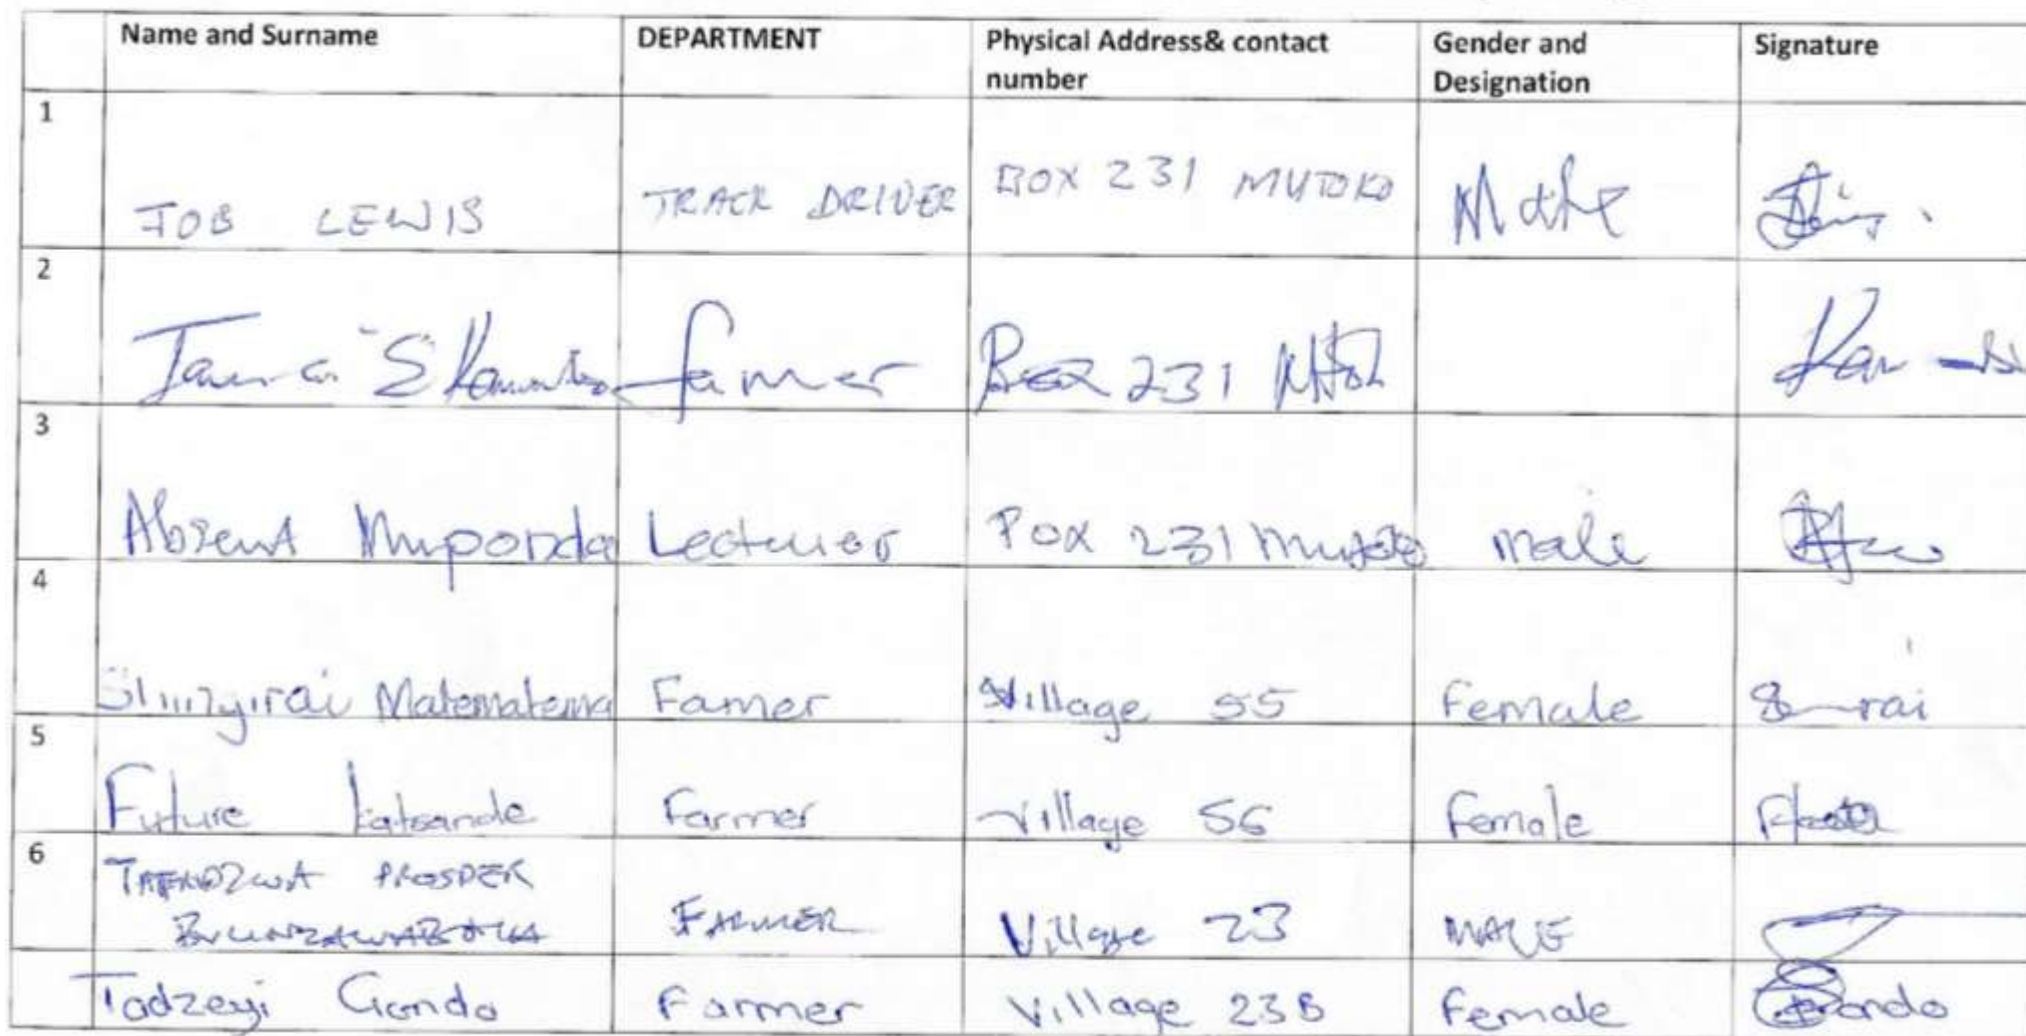 Name and Surname DEPARTMENT Physical Address& contact number Gender and Designation Signature
1 JOB LEWIS TRACK DRIVER BOX 231 MUTOKO Male
2 famer Box 231
3 Absent Muponda Lecturer Pox 231 Mutoko male
4 Shingirai Matematema Famer Village 55 Female
5 Future katsande Farmer Village 56 Female
6 TAFADZWA PROSPER
FARMER Village 23 MALE
Tadzeyi Gondo Farmer Village 23B Female